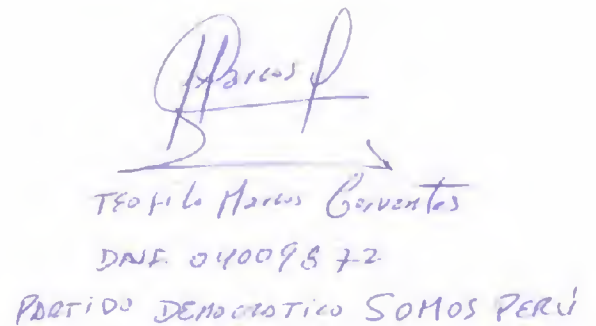 Marcos
Teofilo Marcos Cervantes
DNI 04009872
PARTIDO DEMOCRATICO SOMOS PERÚ